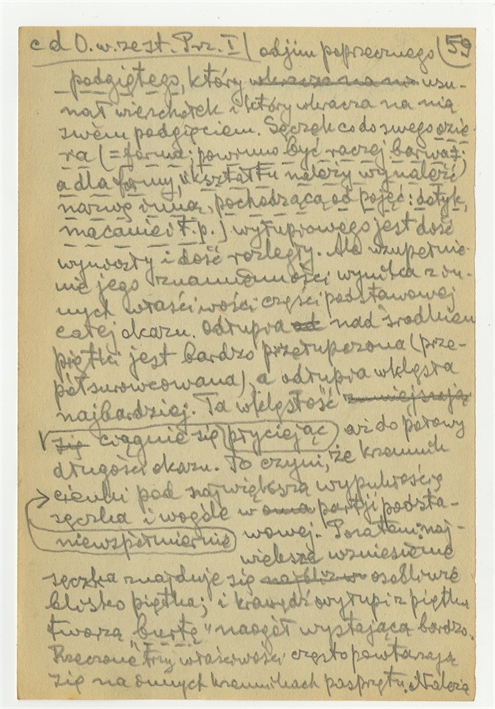 c d O. w. zest. Prz. I / odjim poprzecznego 59
podgiętego, który usu-
nął wierzchołek i który wkracza na nią
swem podgięciem. Sęczek co do swego ozie-
ra (= forma; powinno być raczej barwa;
a dla formy, "kształtu należy wynaleźć
nazwę inną, pochodzącą od pojęć: dotyk,
macanie i t. p.) wyłupowego jest dość
wyniosły i dość rozległy. Ale uzupełnie-
nie jego znamienności wynika z in-
nych właściwości części podstawowej
całej okazu. Odłupnia nad środkiem
piętki jest bardzo przełupczona (prze-
półsurowcowana), a odłupnia wklęsła
najbardziej. Ta wklęsłość
ciągnie się (płyciejąc) aż do połowy
długości okazu. To czyni, że krzemnik
cienki pod największą wypukłością
sęczka i wogóle w partji podsta-
niewspółmiernie wowej. Pozatem: naj-
większe wzniesienie
sęczka znajduje się osobliwie
blisko piętka; i krawędź wyłupi z piętką
tworzą "burtę" naogół wystającą bardzo.
Rzeczone trzy właściwości często powtarzają
się na innych krzemnikach paszprzętu. Należą